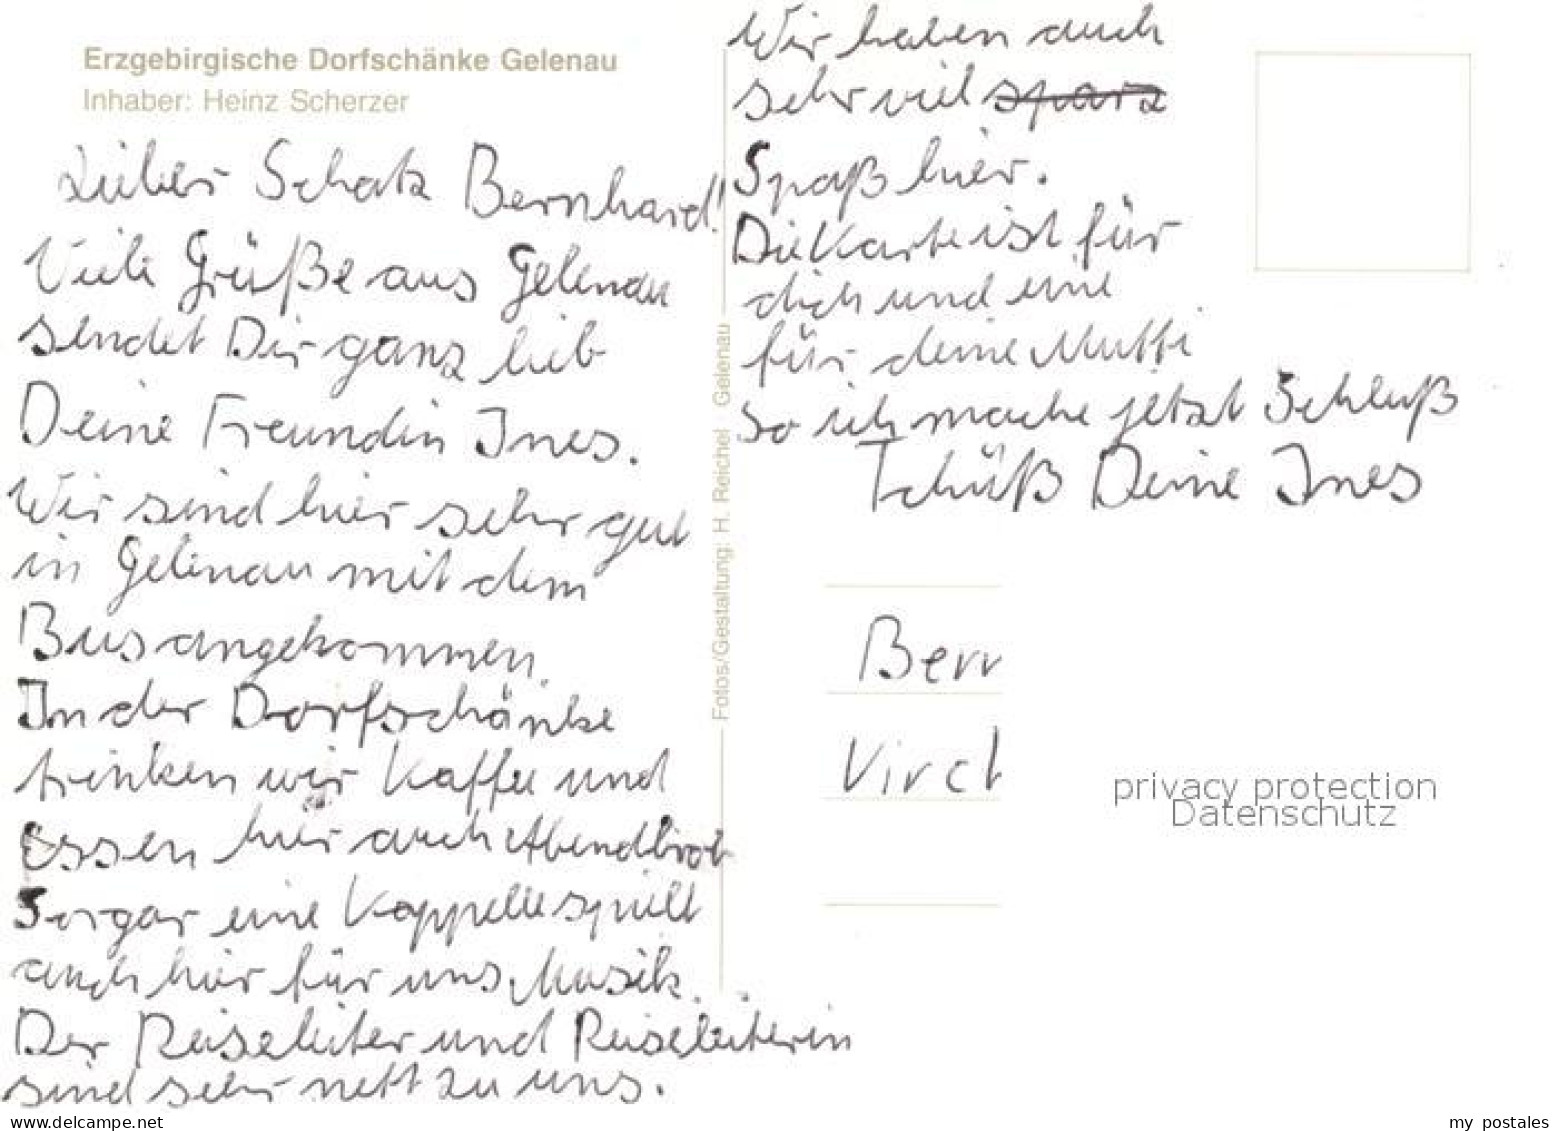 Erzgebirgische Dorfschänke Gelenau
Inhaber: Heinz Scherzer
Lieber Schatz Bernhard!
Viele Grüße aus Gelenau
sendet Dir ganz lieb
Deine Freundin Ines.
Wir sind hier sehr gut
in Gelenau mit dem
Bus angekommen.
In der Dorfschänke
trinken wir Kaffee und
Essen hier auch Abendbrot
Sorgar eine Kappelle spielt
auch hier für uns Musik.
Der Reiseleiter und Reiseleiterin
sind sehr nett zu uns.
Fotos/Gestaltung: H. Reichel Gelenau
Wir haben auch
sehr viel
Spaß hier.
Die Karte ist für
dich und eine
für deine Mutti
So ich mache jetzt Schluß
Tschüß Deine Ines
Bern
Virch
privacy protection
Datenschutz
www.delcampe.net
my_postales